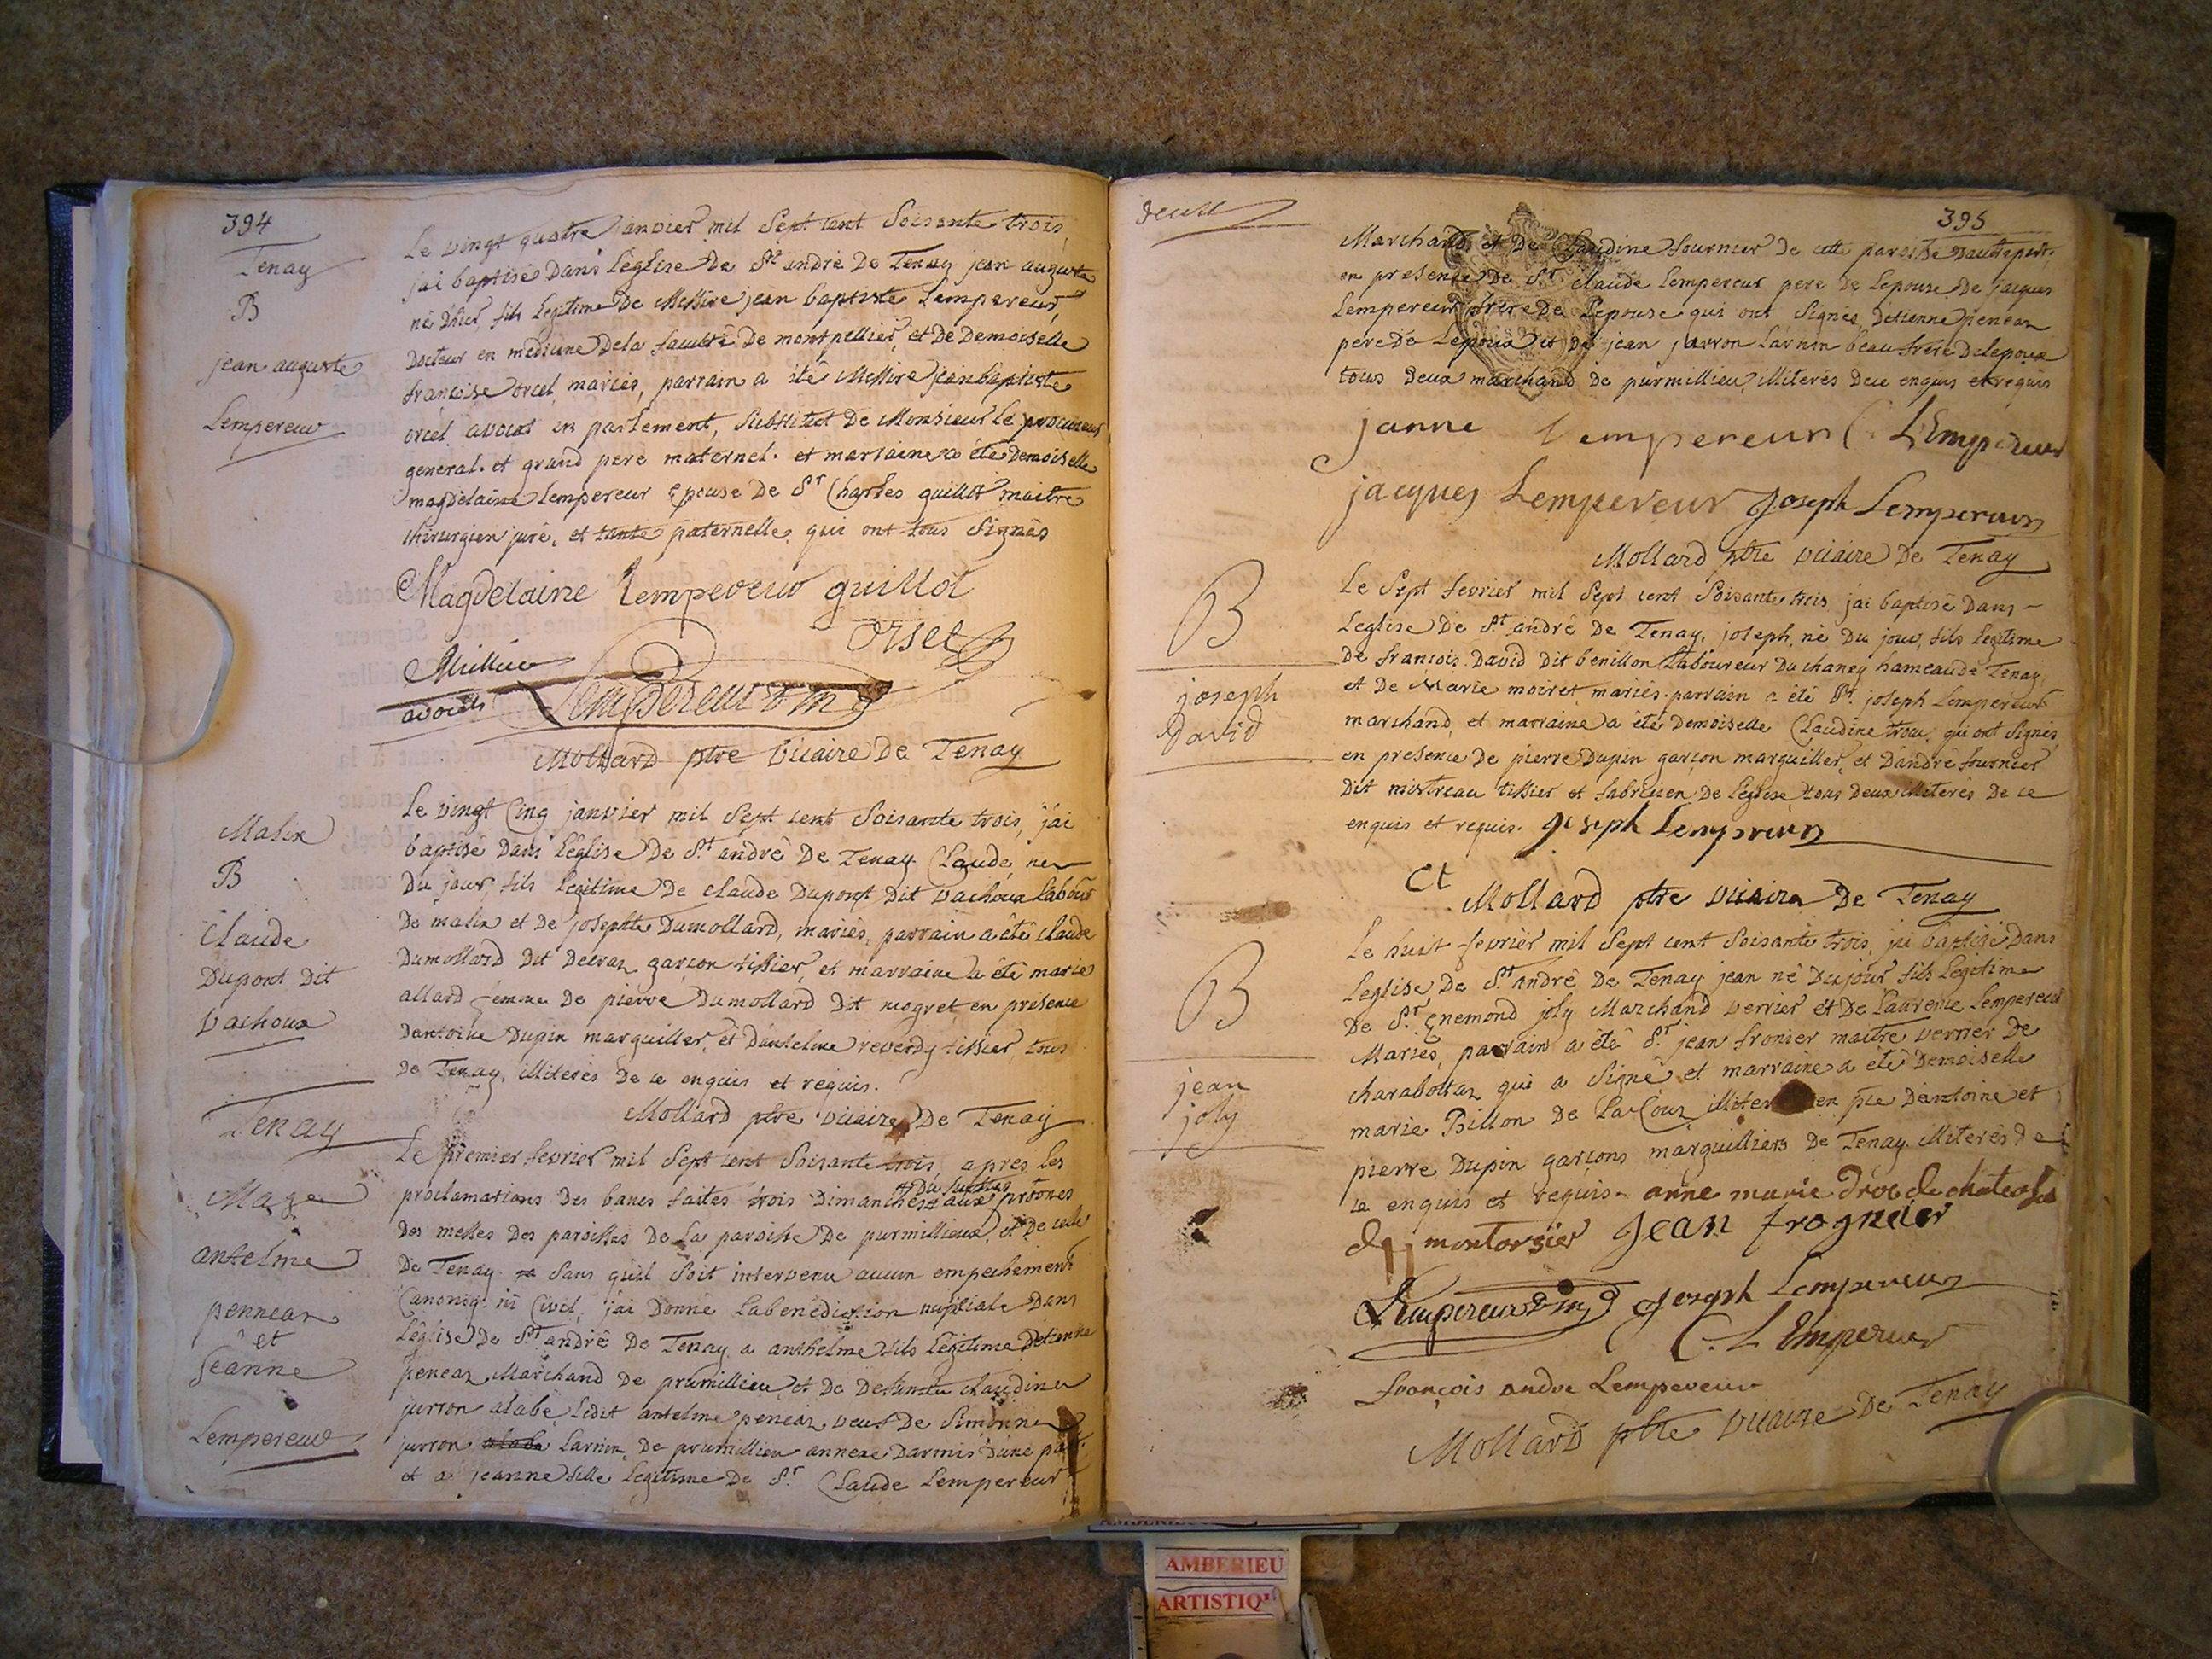 394
Tenay
B
jean auguste
Lempereur
Le vingt quatre janvier mil Sept cent Soisante trois,
jai baptisé Dans Léglise De St andré De Tenay jean auguste
né D'hier, fils Legitime De Messire jean baptiste Lempereur,
Docteur en medicine Dela faculté De montpellier, et De Demoiselle
francoise orcel mariés, parrain a été Messire jean baptiste
orcel avocat en parlement, Substitut De Monsieur Le procureur
general. et grand pere maternel. et marraine a été Demoiselle
magdelaine Lempereur Epouse De Sr Charles guillot maitre
chirurgien juré, et tante paternelle, qui ont tous Signés
Magdelaine Lempereur guillot
orset
avocat
Lempereur D m
Mollard ptre vicaire De Tenay
Malix
B
Claude
Dupont Dit
vachoux
Le vingt Cinq janvier mil Sept cent Soisante trois, j'ai
baptisé Dans Léglise De St andré De Tenay Claude, né
Du jour, fils Legitime De claude Dupont Dit vachoux Labour
De malix et De josephte Dumollard, mariés, parrain a été claude
Dumollard Dit garcon tissier, et marraine a été marie
allard femme De pierre Dumollard Dit mogret, en présence
Dantoine Dupin marguiller, et Dantelme reverdy tissier, tous
De Tenay, illiterés De ce enquis et requis.
Mollard ptre vicaire De Tenay
Tenay
Mage
antelme
pennean
et
Jeanne
Lempereur
Le premier fevrier mil Sept cent Soisante trois, apres Les
proclamations Des bancs faites trois Dimanches aux prônes
Des messes Des paroisses De La paroisse De purmillieux, et De celle
De Tenay Sans qu'il Soit intervenu aucun empechement
Canoniq. ni Civil, j'ai Donné Labenediction nuptiale Dans
Léglise De St andré De Tenay a anthelme fils Legitime Détienne
penean Marchand De prumillieu et De Defuncte claudine
jurron alabé Ledit antelme penean veuf De Simonne
jurron Larnin De prumillieu annexe Darmis Dune part
et a jeanne fille Legitime De Sr Claude Lempereur
395
Marchand et De Claudine fournier De cette paroisse Dautre part.
en presence De Sr Claude Lempereur pere De Lepouse De jacques
Lempereur frere De Lepouse qui ont Signés, Détienne penean
pere De Lepoux et De jean jurron Larnin beau frere De Lepoux
tous Deux marchand De purmillieu, illiterés De ce enquis et requis
janne Lempereur C. L'Empereur
jacques Lempereur Joseph Lempereur
Mollard ptre vicaire De Tenay
B
joseph
David
Le Sept fevrier mil Sept cent Soisante trois jai baptisé Dans
Leglise De St andré De Tenay, joseph né Du jour, fils Legitime
De francois David Dit benillon Laboureur Du chaney hameau de Tenay
et De Marie moiret, mariés. parrain a été Sr joseph Lempereur
marchand, et marraine a été Demoiselle Claudine trou, qui ont Signés
en presence De pierre Dupin garçon marguiller, et D'andré fournier
Dit mistreau tissier et fabricien De L'église tous Deux illiterés De ce
enquis et requis. Joseph Lempereur
Ct
Mollard ptre vicaire De Tenay
B
jean
joly
Le huit fevrier mil Sept cent Soisante trois, jai baptisé Dans
Leglise De St andré De Tenay jean né Du jour fils Legitime
De Sr Enemond joly Marchand verrier et De Laurence Lempereur
Mariés, parrain a été Sr jean fronier maitre verrier De
charabottaz qui a Signé et marraine a été Demoiselle
marie Billon De La Cour, en pce Dantoine et
pierre Dupin garçons marguilliers De Tenay illiterés De
ce enquis et requis. anne marie
De montorsier Jean frognier
Lempereur D m Joseph Lempereur
C. L'Empereur
françois andre Lempereur
Mollard ptre vicaire De Tenay
AMBERIEU
ARTISTIQ